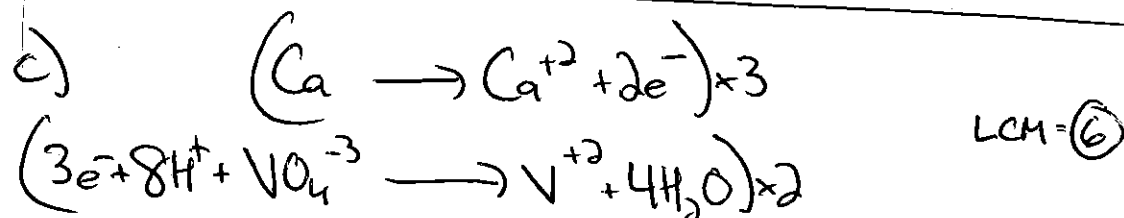 c) (Ca → Ca⁺² + 2e⁻)×3
LCM = 6
(3e⁻ + 8H⁺ + VO₄⁻³ → V⁺² + 4H₂O)×2